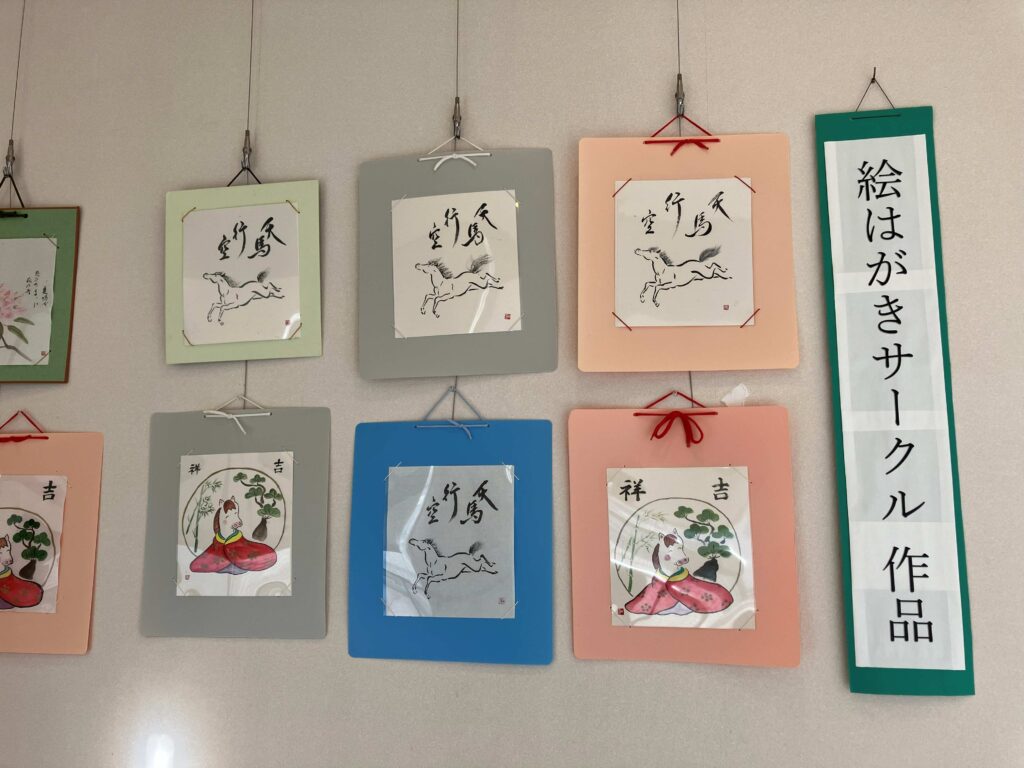 絵はがきサークル 作品
天馬行空
天馬行空
天馬行空
吉祥
天馬行空
吉祥
吉